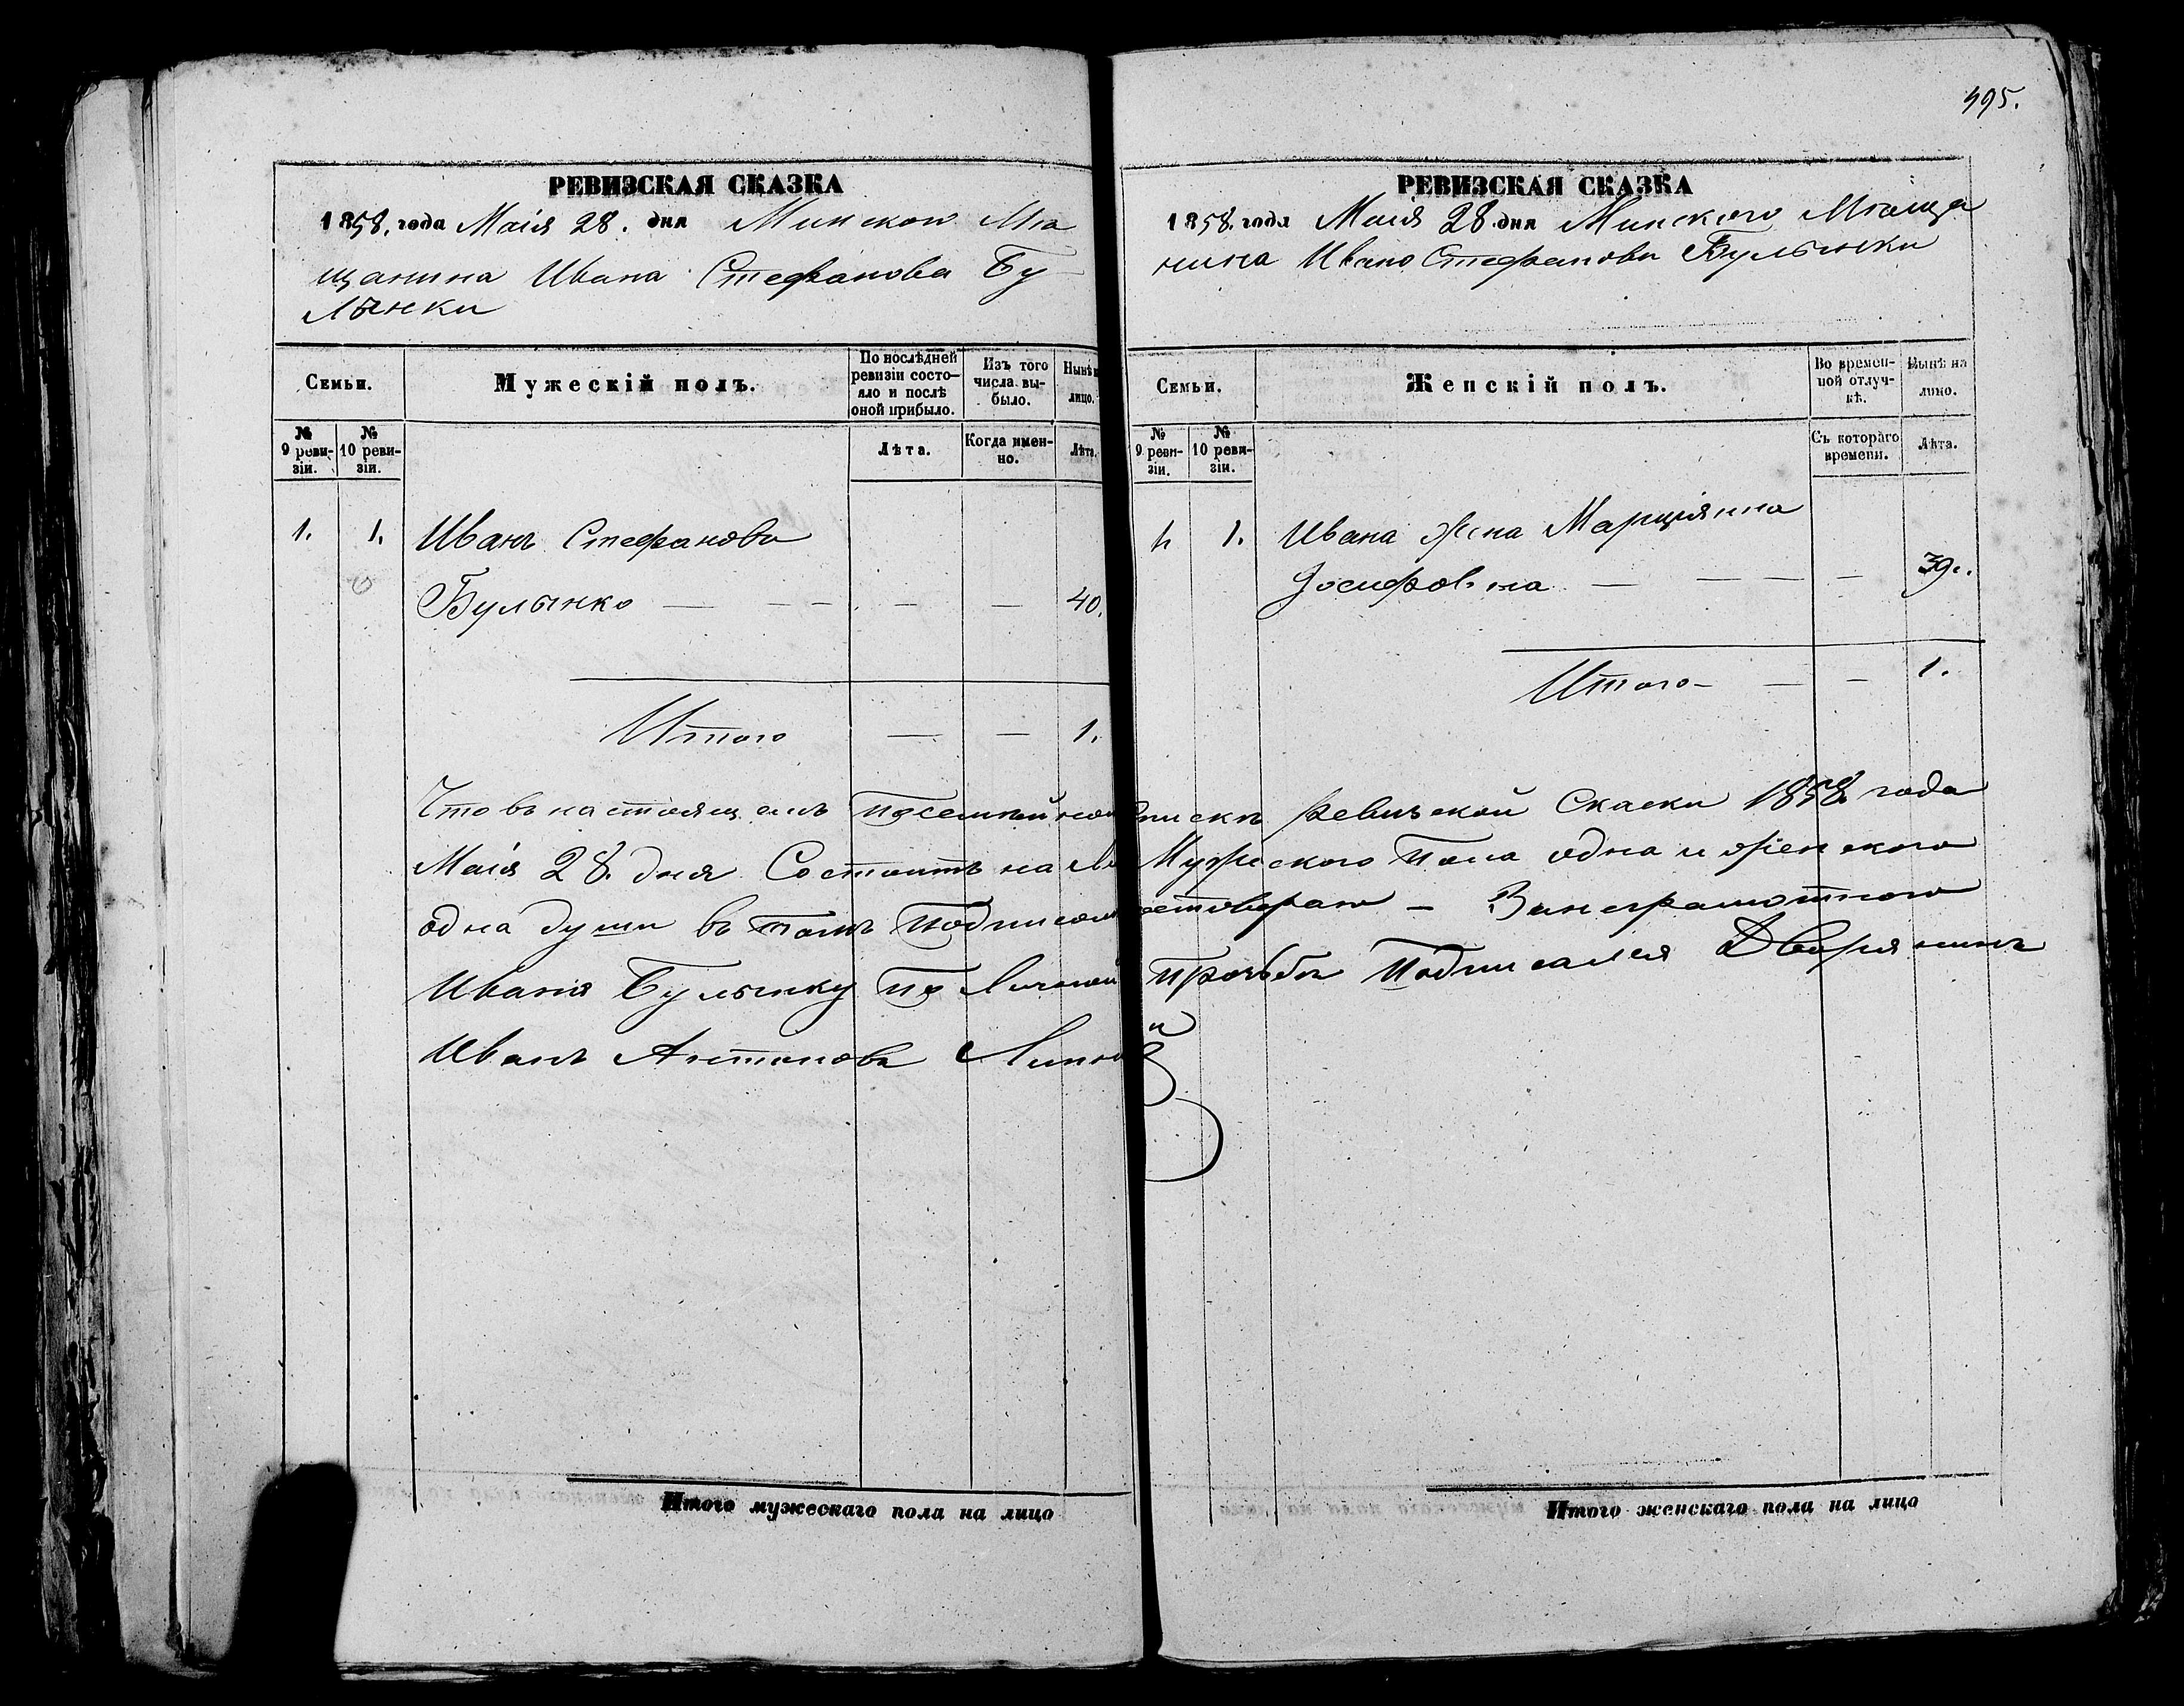 495.
РЕВИЗСКАЯ СКАЗКА
1858. года Маія 28. дня Минскаго Мѣ
щанина Ивана Стефанова Бу
лынки
Семьи.
Мужескій полъ.
По послѣдней ревизіи состояло и послѣ оной прибыло.
Изъ того числа выбыло.
Нынѣ
лицо.
№ 9 ревизіи.
№ 10 ревизіи.
Лѣта.
Когда именно.
Лѣта.
1. 1. Иванъ Стефановъ
Булынко — — — — — 40.
Итого — — 1.
РЕВИЗСКАЯ СКАЗКА
1858. года Маія 28 дня Минского Мѣща
нина Ивана Стефанова Булынки
Семьи.
Женскій полъ.
Во временной отлучкѣ.
Нынѣ на лицо.
№ 9 ревизіи.
№ 10 ревизіи.
Съ котораго времени.
Лѣта.
1. 1. Ивана жена Марціянна
Іосифовна — — — — 39.
Итого — — — 1.
Что въ настоящемъ посемейномъ спискѣ ревизской Скаски 1858. года
Маія 28. дня Состоитъ на Ли Мужеского пола одна и женского
одна души въ томъ подписомъ удостовѣряю — За неграмотного
Ивана Булынку по Личной прозьбѣ подписался Дворянинъ
Иванъ Антоновъ
Итого мужескаго пола на лицо
Итого женскаго пола на лицо